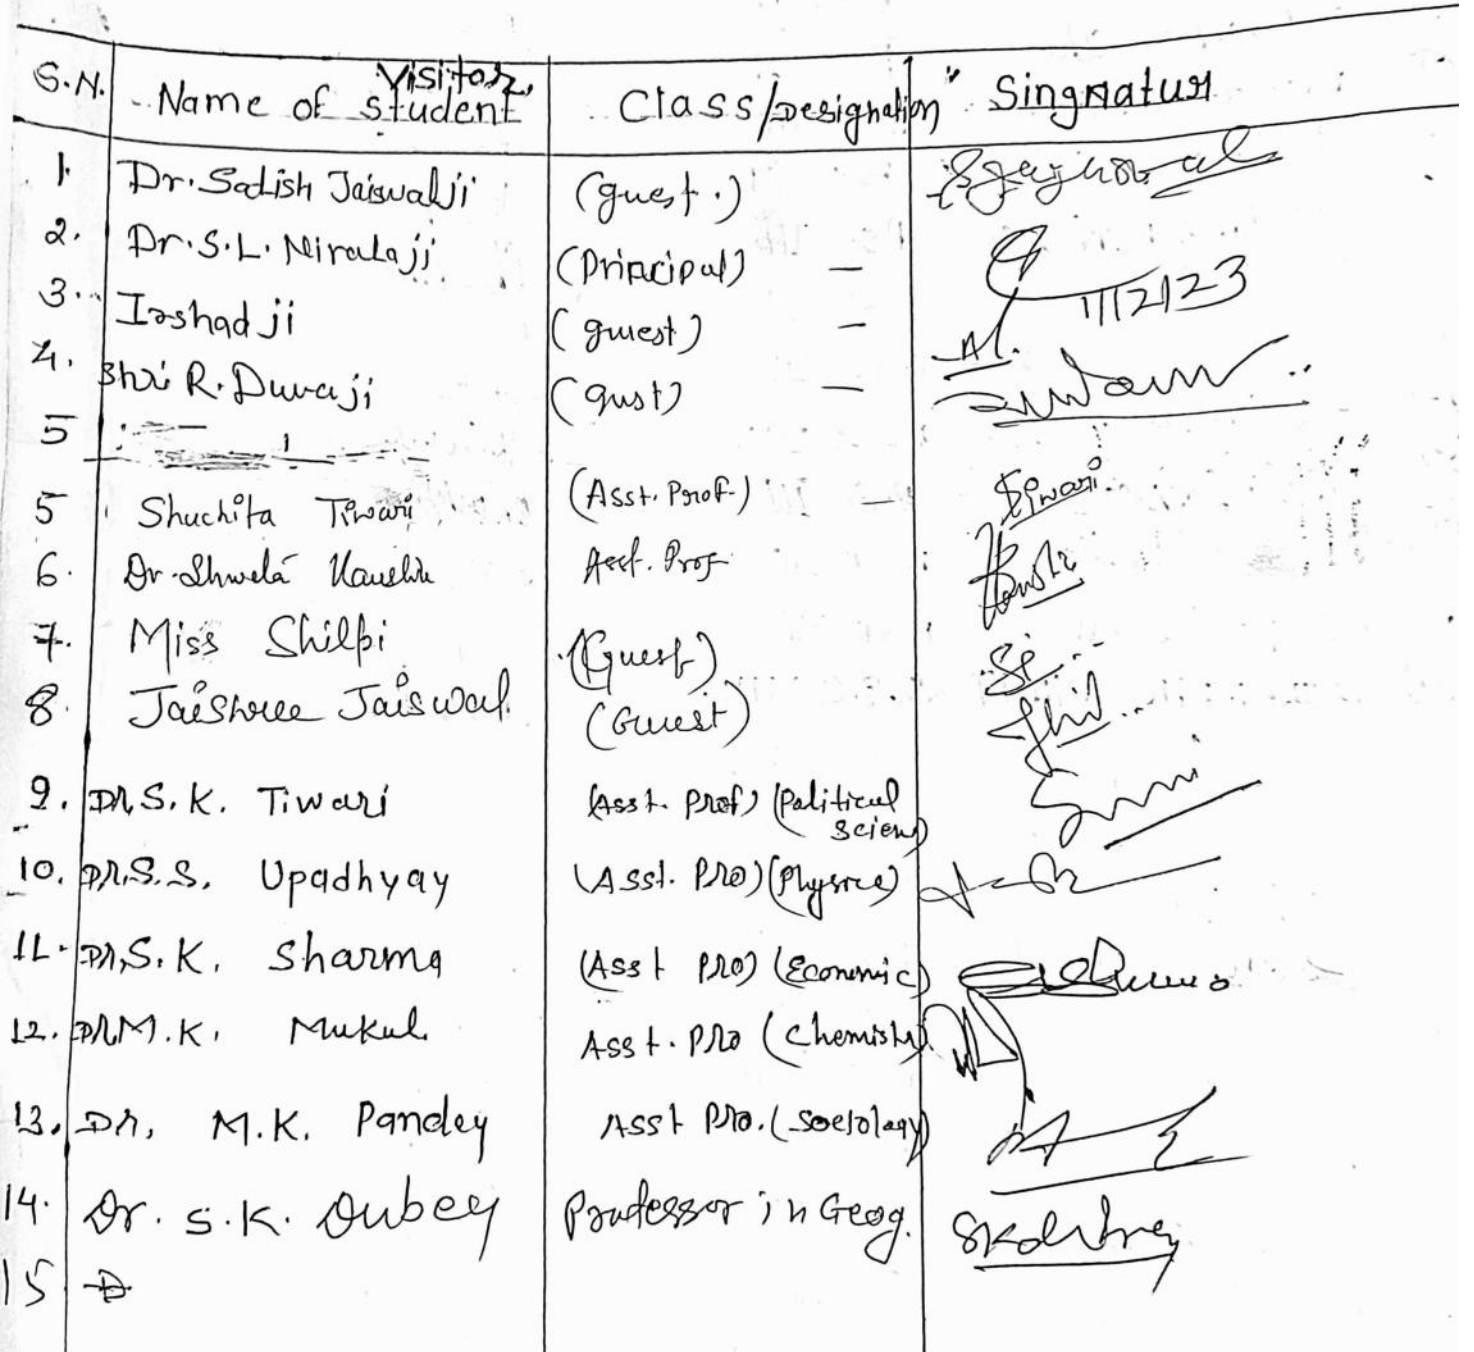 S.N. Name of Visitor, student Class/Designation Singnatur
1. Dr. Satish Jaiswalji (guest.)
2. Dr. S.L. Niralaji (Principal) — 1/12/23
3. Irshad ji (guest) —
4. Shri R. Duvaji (gust) —
5
5 Shuchita Tiwari (Asst. Prof.) — Tiwari
6. Dr. Shweta Kaushik Asst. Prof
7. Miss Shilpi (Guest)
8. Jaishree Jaiswal (Guest)
9. Dr. S. K. Tiwari (Asst. Prof) (Political Scien)
10. Dr. S. S. Upadhyay (Asst. Pro) (Physice)
11. Dr. S. K. Sharma (Asst Pro) (Economic)
12. Dr M. K. Mukul Asst. Pro (Chemistry)
13. Dr. M.K. Pandey Asst Pro. (Sociology)
14. Dr. S.K. Dubey Professor in Geog. SKDubey
15